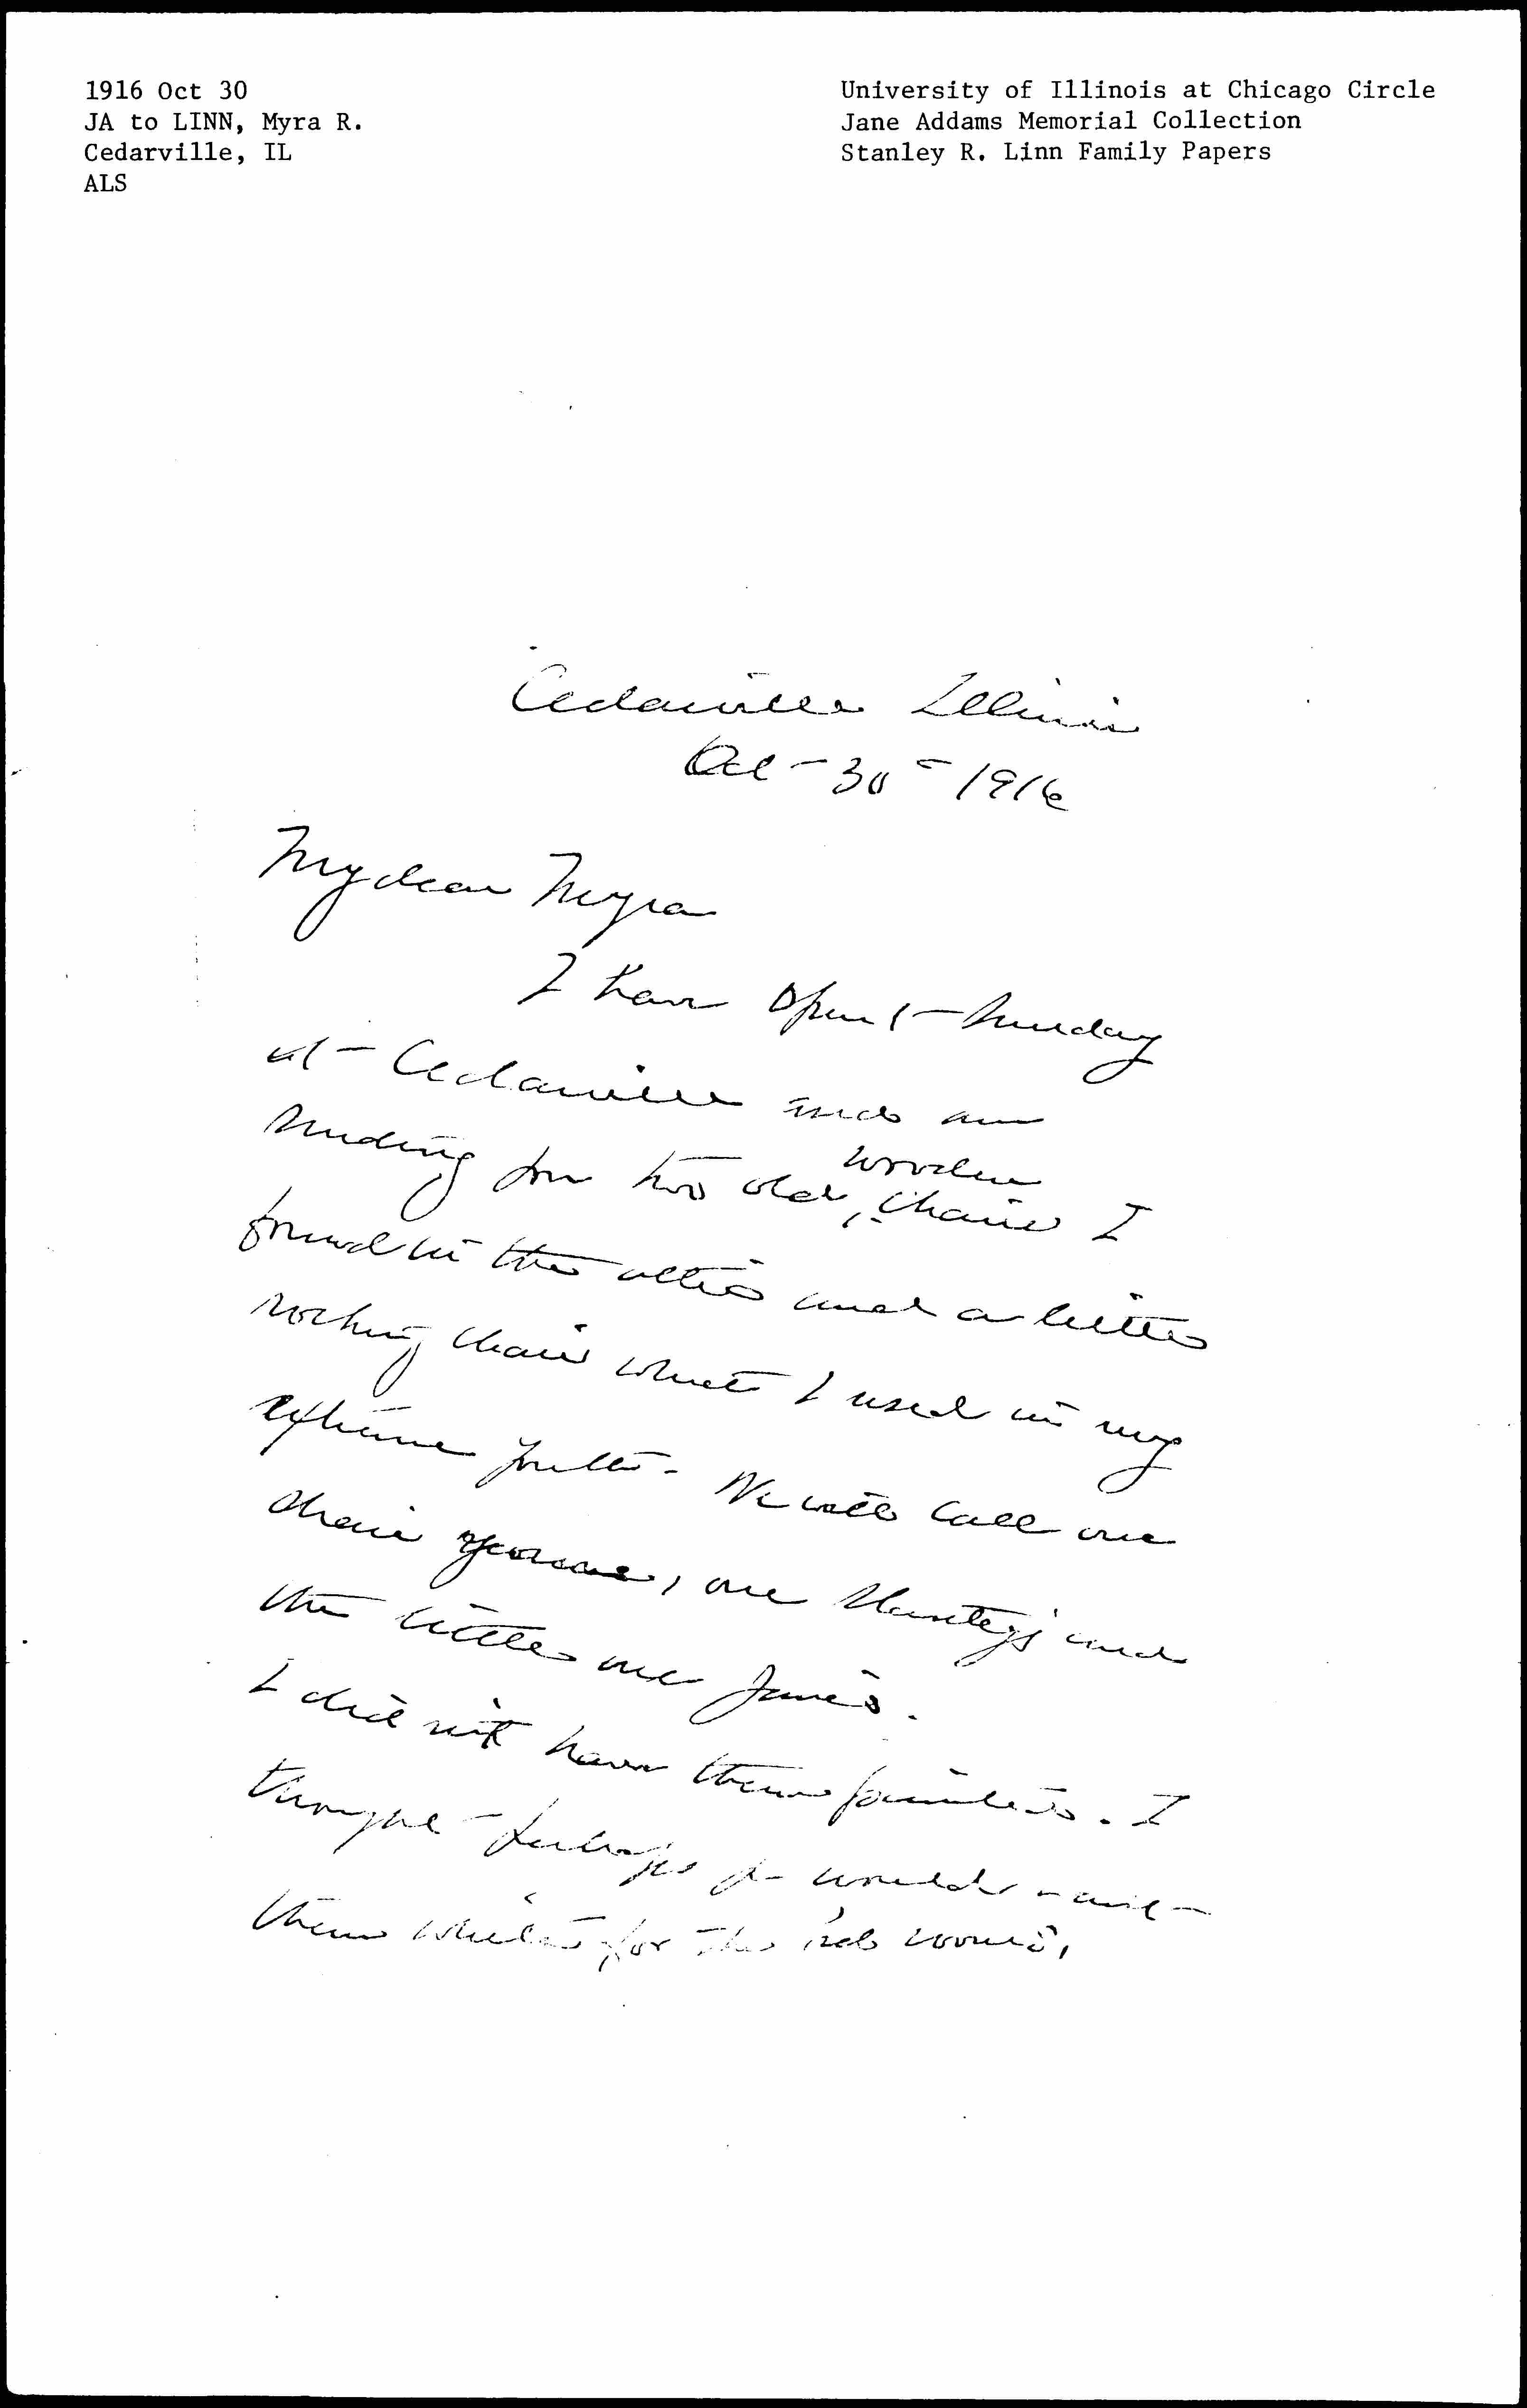 1916 Oct 30
JA to LINN, Myra R.
Cedarville, IL
ALS
University of Illinois at Chicago Circle
Jane Addams Memorial Collection
Stanley R. Linn Family Papers
Cedarville Illinois
Oct - 30 - 1916
My dear Myra
I have spent Sunday
at Cedarville and am
sending you two old, wooden chairs I
found in the attic and a little
rocking chair which I used in my
extreme youth. We will call one
chair yours, one Stanley's and
the little one Jane's.
I did not have them painted. I
thought perhaps you would want
them white for the bed rooms,